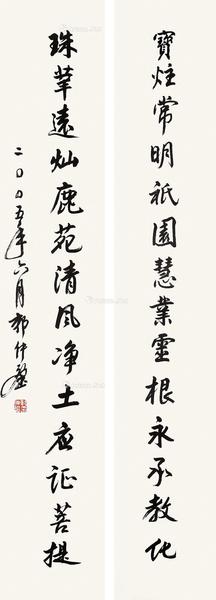 寶炷常明祇園慧業靈根永承教化
珠華遠灿鹿苑清风净土应证菩提
二〇〇五年六月郭仲